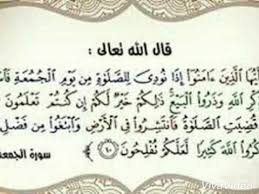 قال الله تعالى :
أَيُّهَا الَّذِينَ ءَامَنُوا إِذَا نُودِيَ لِلصَّلَوٰةِ مِن يَوْمِ الْجُمُعَةِ
ذِكْرِ اللَّهِ وَذَرُوا الْبَيْعَ ذَٰلِكُمْ خَيْرٌ لَّكُمْ إِن كُنتُمْ تَعْلَمُونَ
قُضِيَتِ الصَّلَوٰةُ فَانتَشِرُوا فِي الْأَرْضِ وَابْتَغُوا مِن فَضْلِ
كُرُوا اللَّهَ كَثِيرًا لَّعَلَّكُمْ تُفْلِحُونَ ١٠ سورة الجمعة